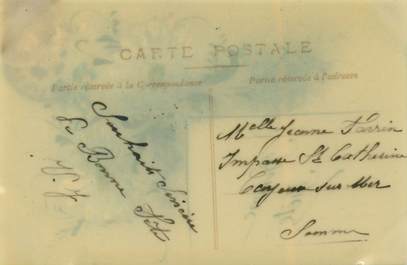 CARTE POSTALE
Partie réservée à la Correspondance
Partie réservée à l'adresse
Souhait Sincère
de Bonne Fête
V. J
Melle Jeanne Parrin
Impasse Ste Catherine
Cayeux sur Mer
Somme